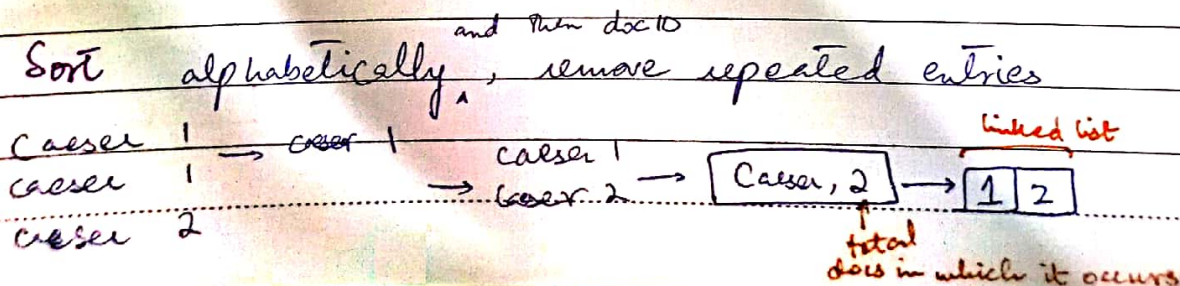 and then doc ID
Sort alphabetically ^, remove repeated entries
linked list
Caeser 1 → caeser 1
caeser 1 → caeser 1 → Caeser, 2 → 1 2
caeser 2 caeser 2
total
docs in which it occurs